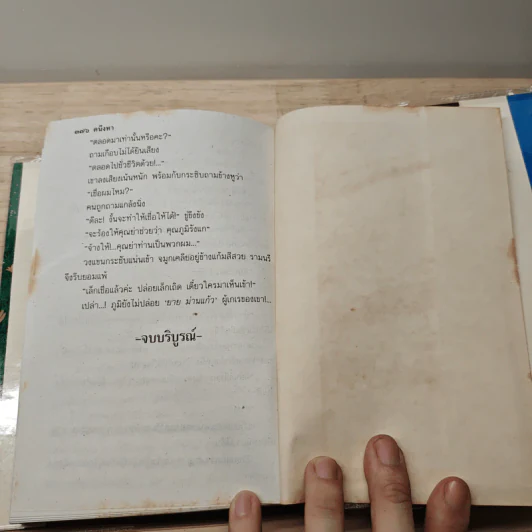 ๓๘๖ คนึงหา
"ตลอดมาเท่านั้นหรือคะ?"
ถามเกือบไม่ได้ยินเสียง
"ตลอดไปชั่วชีวิตด้วย!..."
เขาลงเสียงเน้นหนัก พร้อมกับกระซิบถามข้างหูว่า
"เชื่อผมไหม?"
คนถูกถามแกล้งนิ่ง
"ดีละ! งั้นจะทำให้เชื่อให้ได้!" ขู่ขึงขัง
"จะร้องให้คุณย่าช่วยว่า คุณภูมิรังแก"
"จ้างให้!...คุณย่าท่านเป็นพวกผม..."
วงแขนกระชับแน่นเข้า จมูกเคลียอยู่ข้างแก้มสีสวย รามนรี
จึงรีบยอมแพ้
"เล็กเชื่อแล้วค่ะ ปล่อยเล็กเถิด เดี๋ยวใครมาเห็นเข้า!"
เปล่า...! ภูมิยังไม่ปล่อย 'ยาย ม่านแก้ว' ผู้เกเรของเขา!...
-จบบริบูรณ์-